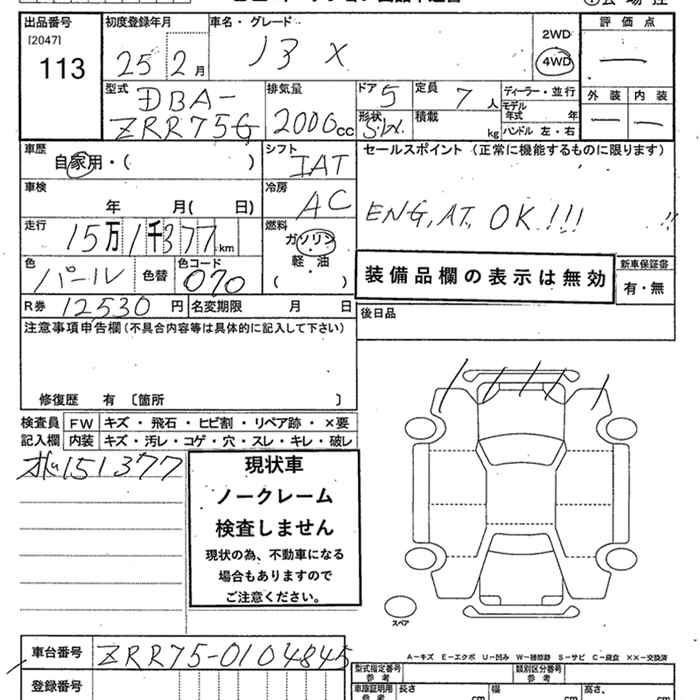 出品番号 初度登録年月 車名・グレード 評価点
[2047]
113
25 2月
13 X
2WD
4WD
型式 排気量 ドア 定員 ディーラー・並行 外装 内装
DBA-
ZRR75G
2000cc
5
7人
モデル年式 年
形状 積載 kg ハンドル 左・右
車歴 シフト セールスポイント (正常に機能するものに限ります)
自家用・( )
IAT
車検 冷房
年 月( 日)
AC
ENG,AT, OK!!!
走行 燃料
15万1千377km
ガソリン
・
軽・油
( )
色 色替 色コード
パール 070
装備品欄の表示は無効
新車保証書
有・無
R券 12530円 名変期限 月 日
後日品
注意事項申告欄(不具合内容等は具体的に記入して下さい)
修復歴 有 〔箇所 〕
検査員 FW キズ・飛石・ヒビ割・リペア跡・×要
記入欄 内装 キズ・汚レ・コゲ・穴・スレ・キレ・破レ
151377
現状車
ノークレーム
検査しません
現状の為、不動車になる
場合もありますので
ご注意ください。
スペア
A-キズ E-エクボ U-凹み W-補修跡 S-サビ C-腐食 XX-交換済
車台番号 ZRR75-0104845
登録番号
型式指定番号 参考 類別区分番号 参考
車庫証明用 参考 長さ cm 幅 cm 高さ cm